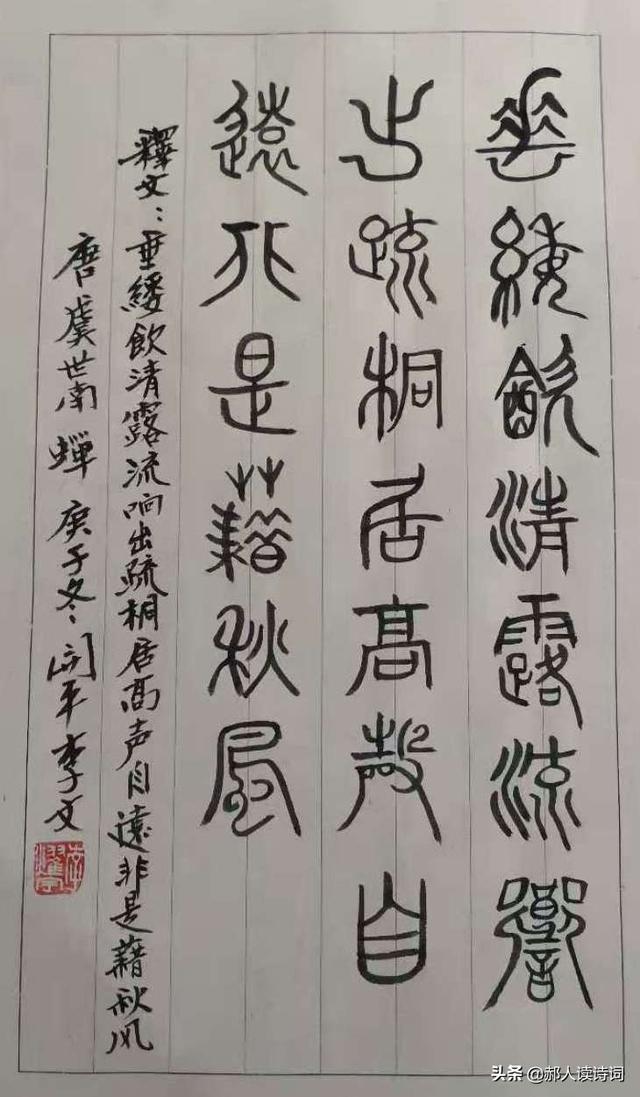 垂緌飲清露流響
出疏桐居高聲自
遠非是藉秋風
釋文：垂緌飲清露流响出疏桐居高声自遠非是藉秋风
唐虞世南蟬庚子冬開平李文
头条 @郝人读诗词